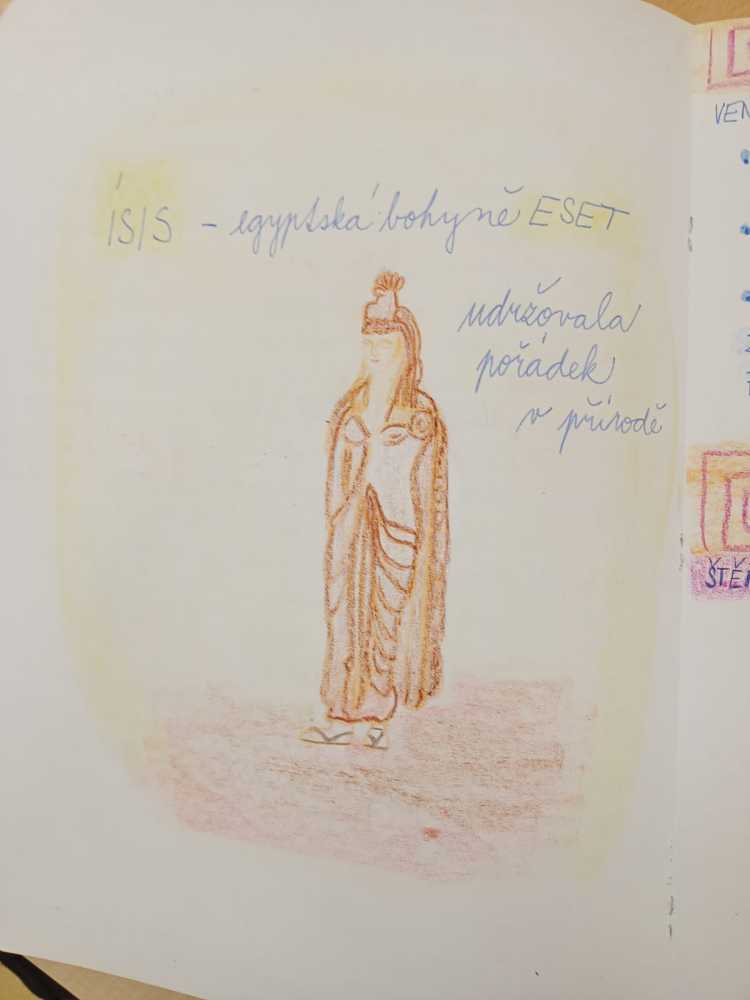 ÍSIS - egyptská bohyně ESET
udržovala
pořádek
v přírodě